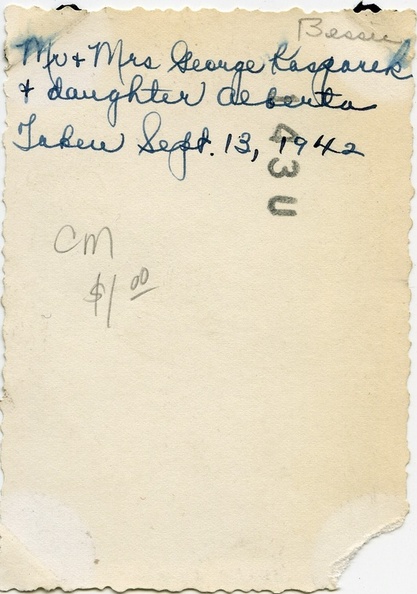 Bessie
Mr + Mrs George Kasparek
+ daughter Alberta
Taken Sept. 13, 1942
43U
CM
$1.00